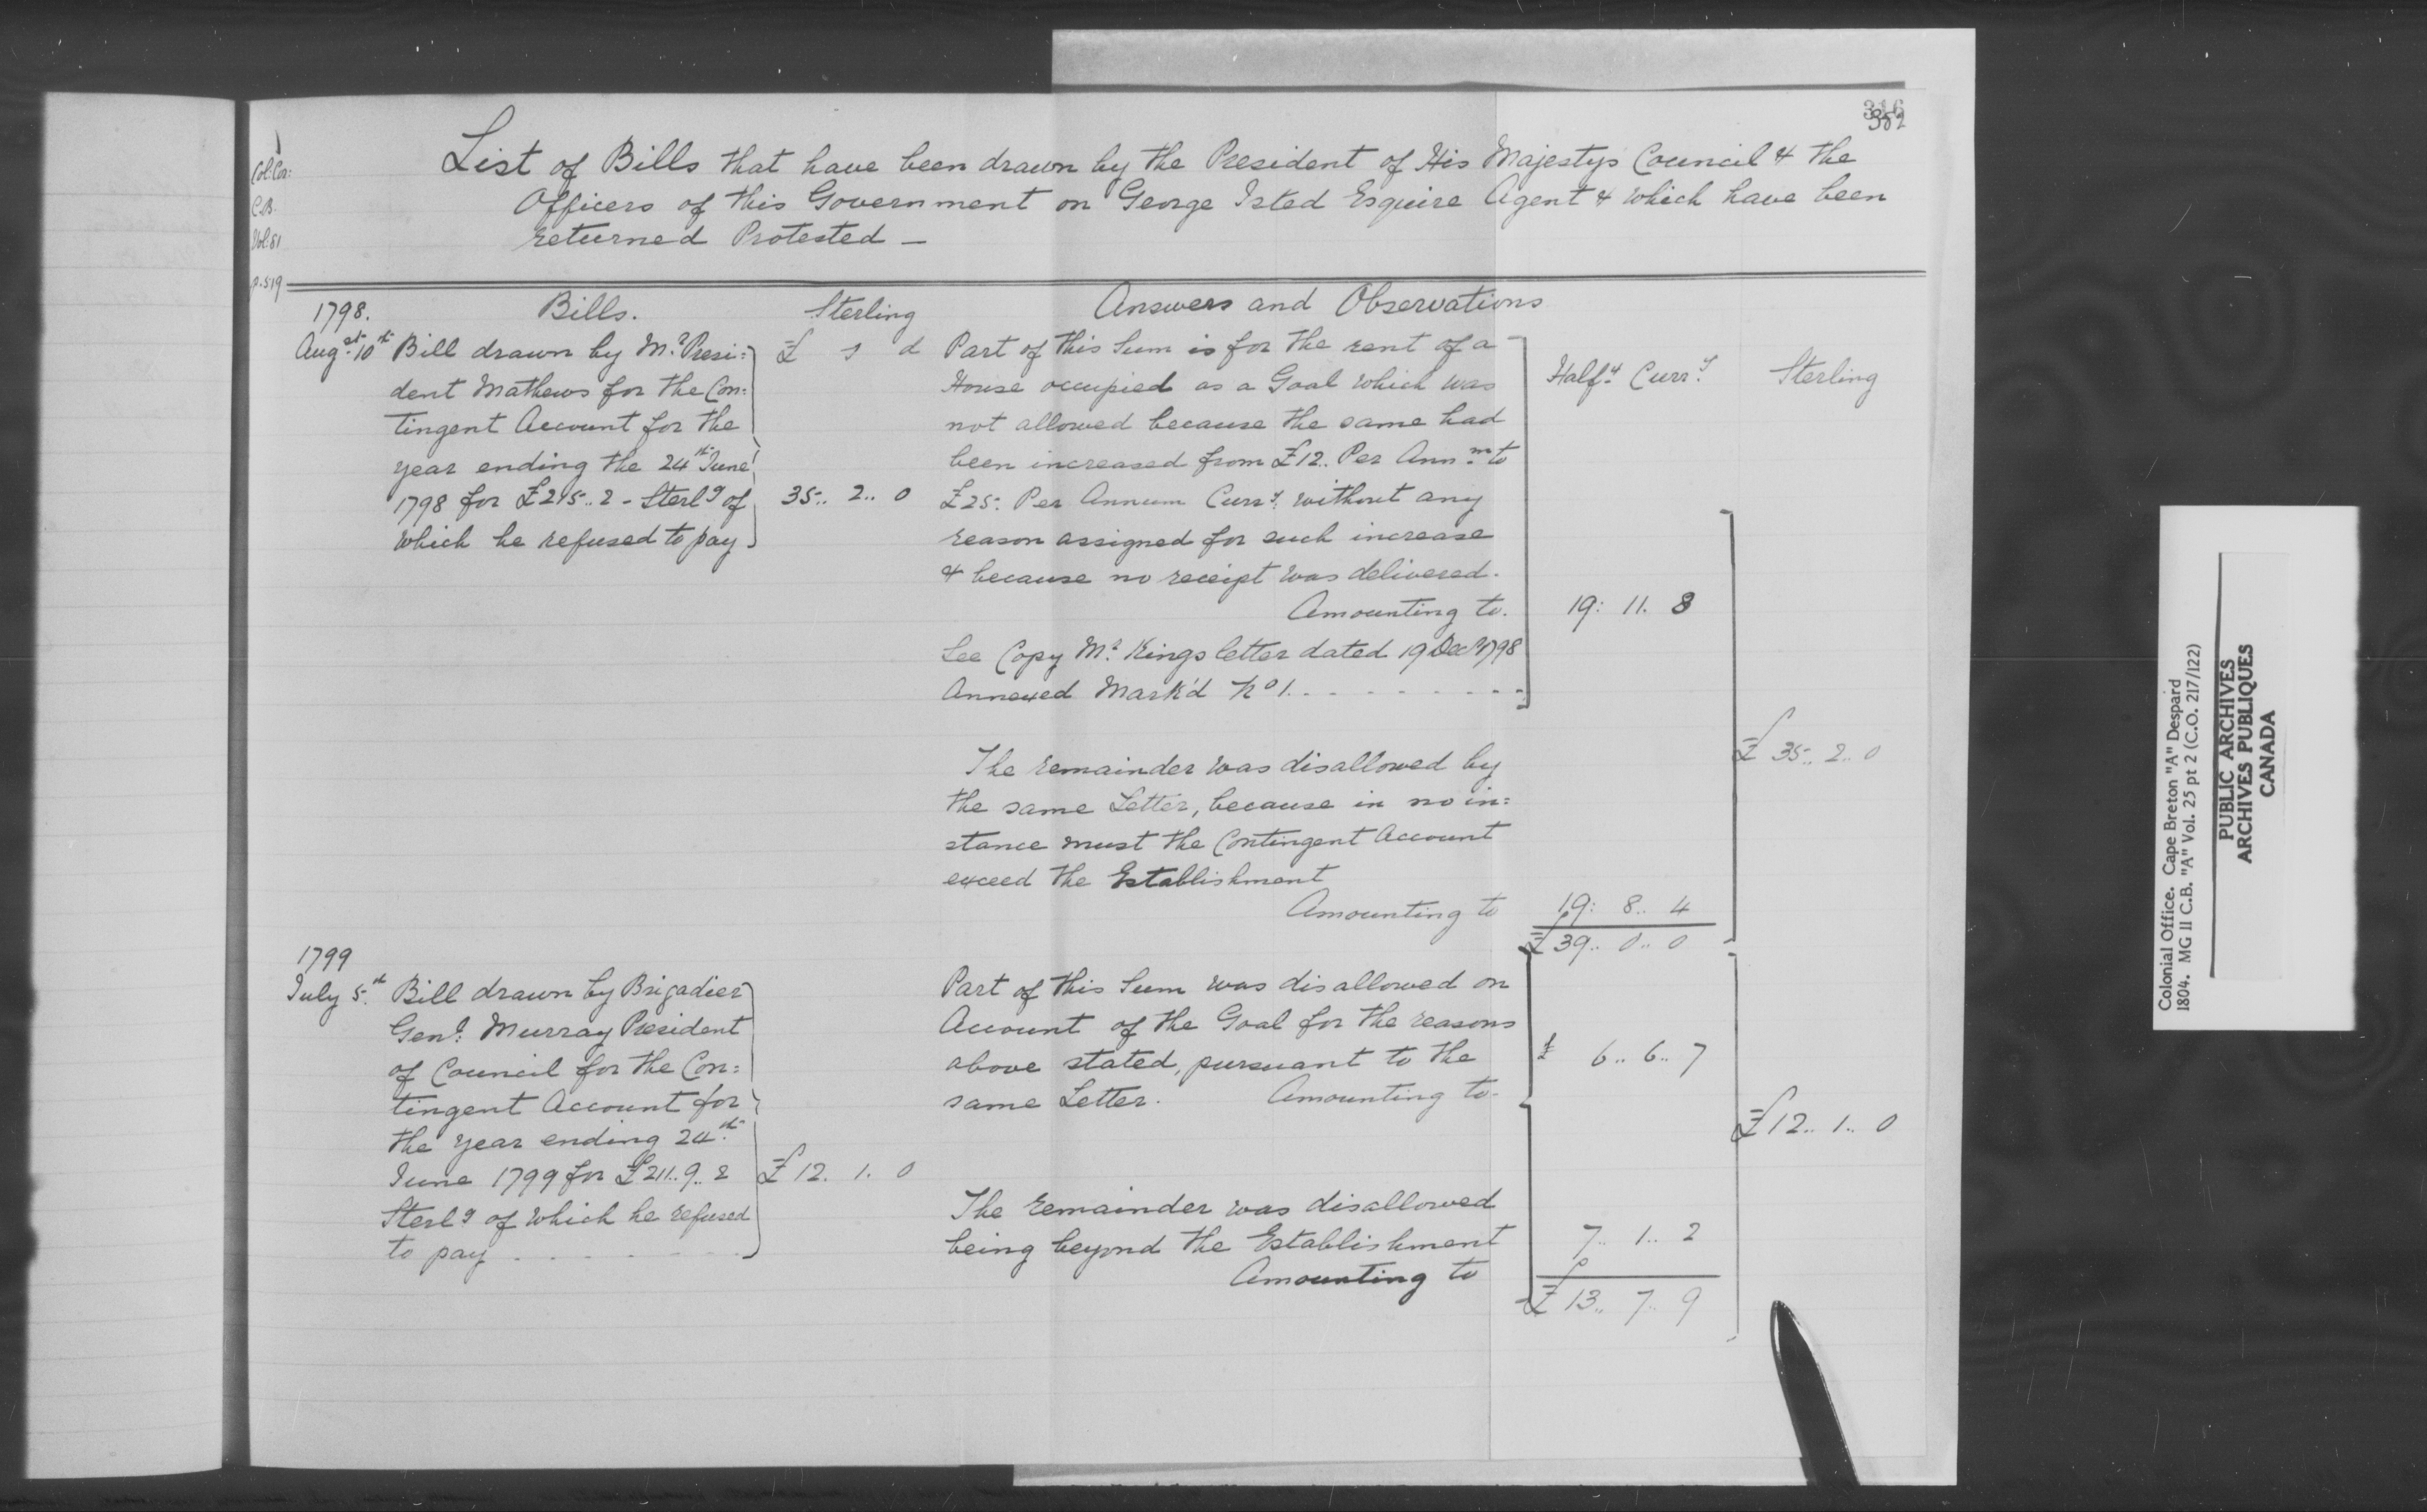 316
352
Col: Cor:
C.B.
Vol: 81
p. 519
List of Bills that have been drawn by the President of His Majestys Council & the
Officers of this Government on George Isted Esquire Agent & which have been
returned Protested —
1798.
Bills.
Sterling
Answers and Observations
Augst. 10th Bill drawn by Mr. Presi:
dent Mathews for the Con:
tingent Account for the
year ending the 24th June
1798 for £215.. 2 - Sterlg of
which he refused to pay
£ s d
35.. 2.. 0
Part of this Sum is for the rent of a
House occupied as a Goal which was
not allowed because the same had
been increased from £12.. Per Annm. to
£25: Per Annum Curry. without any
reason assigned for such increase
& because no receipt was delivered.
Amounting to.
See Copy Mr. Kings letter dated 19 Decr 1798
Annexed Mark'd No 1. - - - - - - - - -
Halfx. Curry.
Sterling
19: 11. 8
The remainder was disallowed by
the same Letter, because in no in:
stance must the Contingent Account
exceed the Establishment
Amounting to
19: 8.. 4
£ 39.. 0.. 0
£ 35.. 2.. 0
1799
July 5.th Bill drawn by Brigadier
Genl: Murray President
of Council for the Con:
tingent Account for
the year ending 24th.
June 1799 for £211.. 9.. 2
Sterlg of which he refused
to pay - - - - - - - -
£ 12. 1. 0
Part of this Sum was disallowed on
Account of the Goal for the reasons
above stated, pursuant to the
same Letter. Amounting to-
£ 6.. 6.. 7
The remainder was disallowed
being beyond the Establishment
Amounting to
7.. 1.. 2
£ 13.. 7.. 9
£ 12.. 1.. 0
Colonial Office. Cape Breton "A" Despard
1804. MG II C.B. "A" Vol. 25 pt 2 (C.O. 217/122)
PUBLIC ARCHIVES
ARCHIVES PUBLIQUES
CANADA